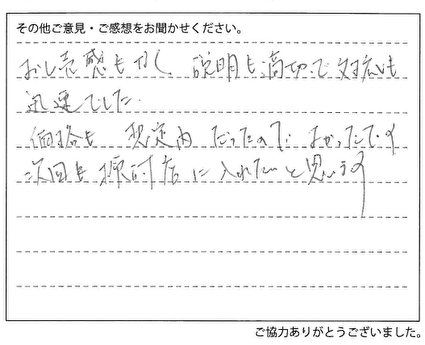 その他ご意見・ご感想をお聞かせください。
おし売感もなく、説明も適切で対応も
迅速でした。
価格も 想定内だったので よかったです
次回も検討店に入れたいと思います
ご協力ありがとうございました。